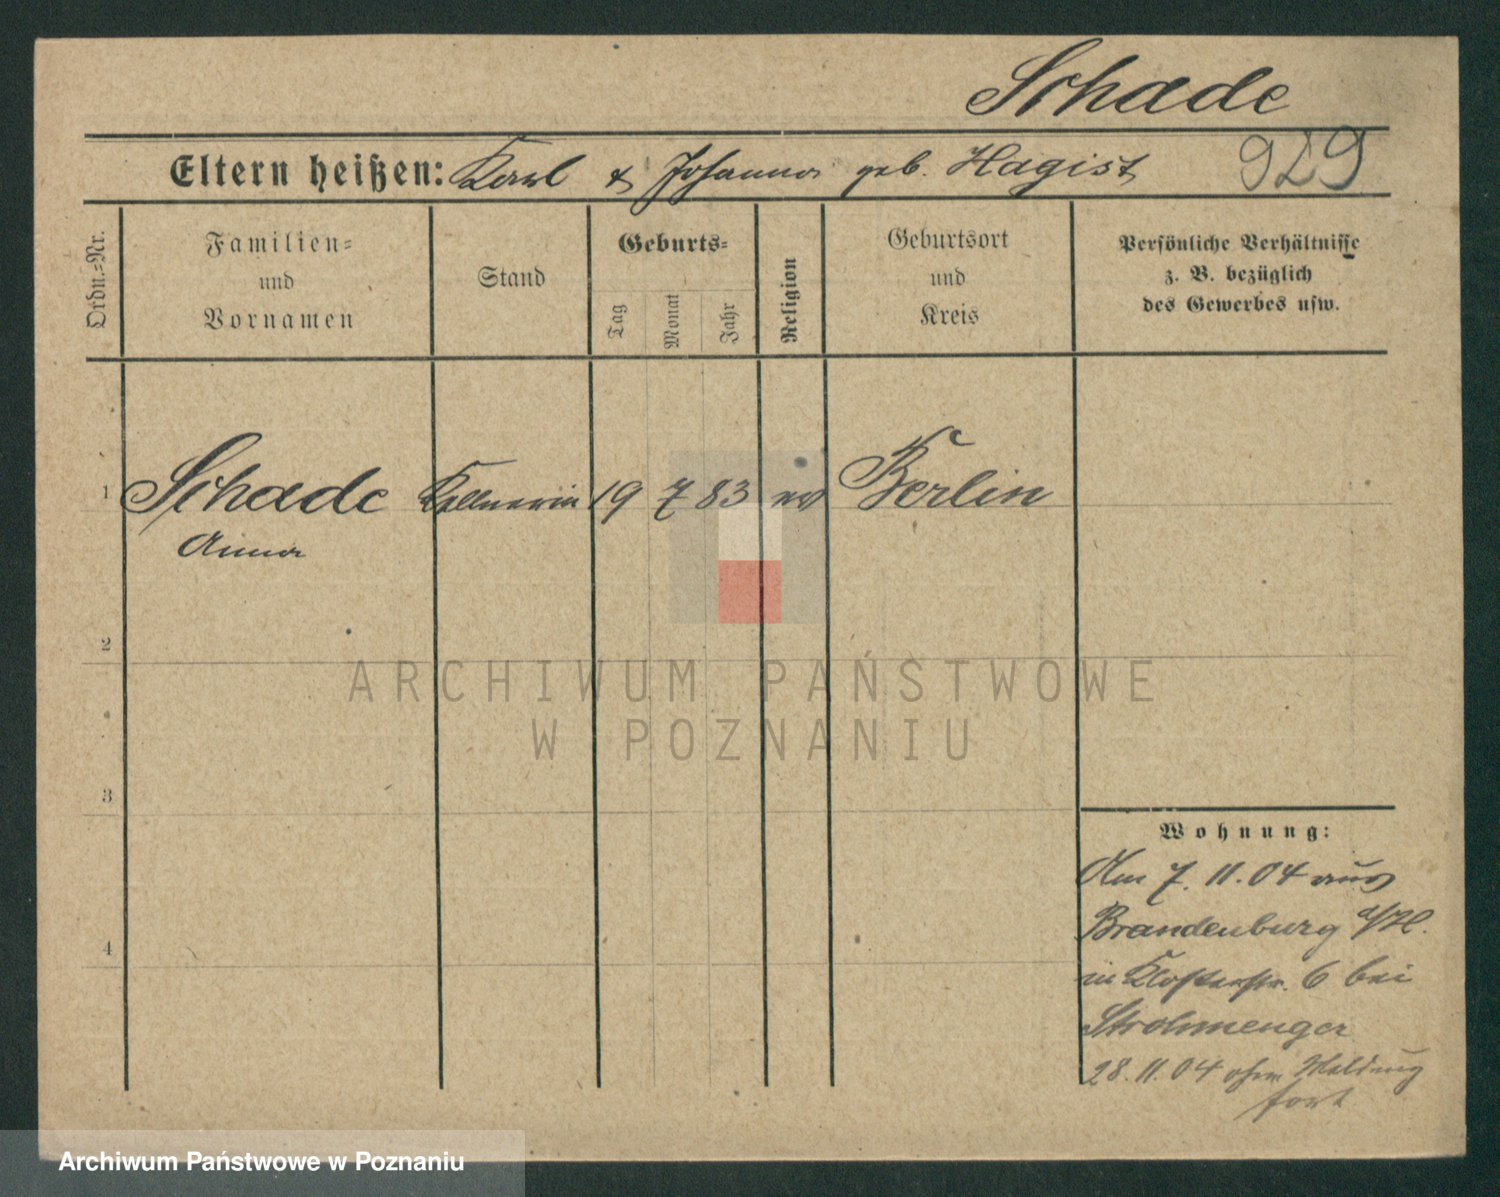 Schade
Eltern heißen: Karl & Johanna geb. Hagist
929
Ordn.=Nr.
Familien=
und
Vornamen
Stand
Geburts=
Tag
Monat
Jahr
Religion
Geburtsort
und
Kreis
Persönliche Verhältnisse
z. B. bezüglich
des Gewerbes usw.
1 Schade Kellnerin 19 7 83 ev Berlin
Anna
2
3
4
Wohnung:
Am 7. 11. 04 aus
Brandenburg a/H.
in Klosterstr. 6 bei
Strohmenger
28. 11. 04 ohne Meldung
fort
ARCHIWUM PAŃSTWOWE
W POZNANIU
Archiwum Państwowe w Poznaniu